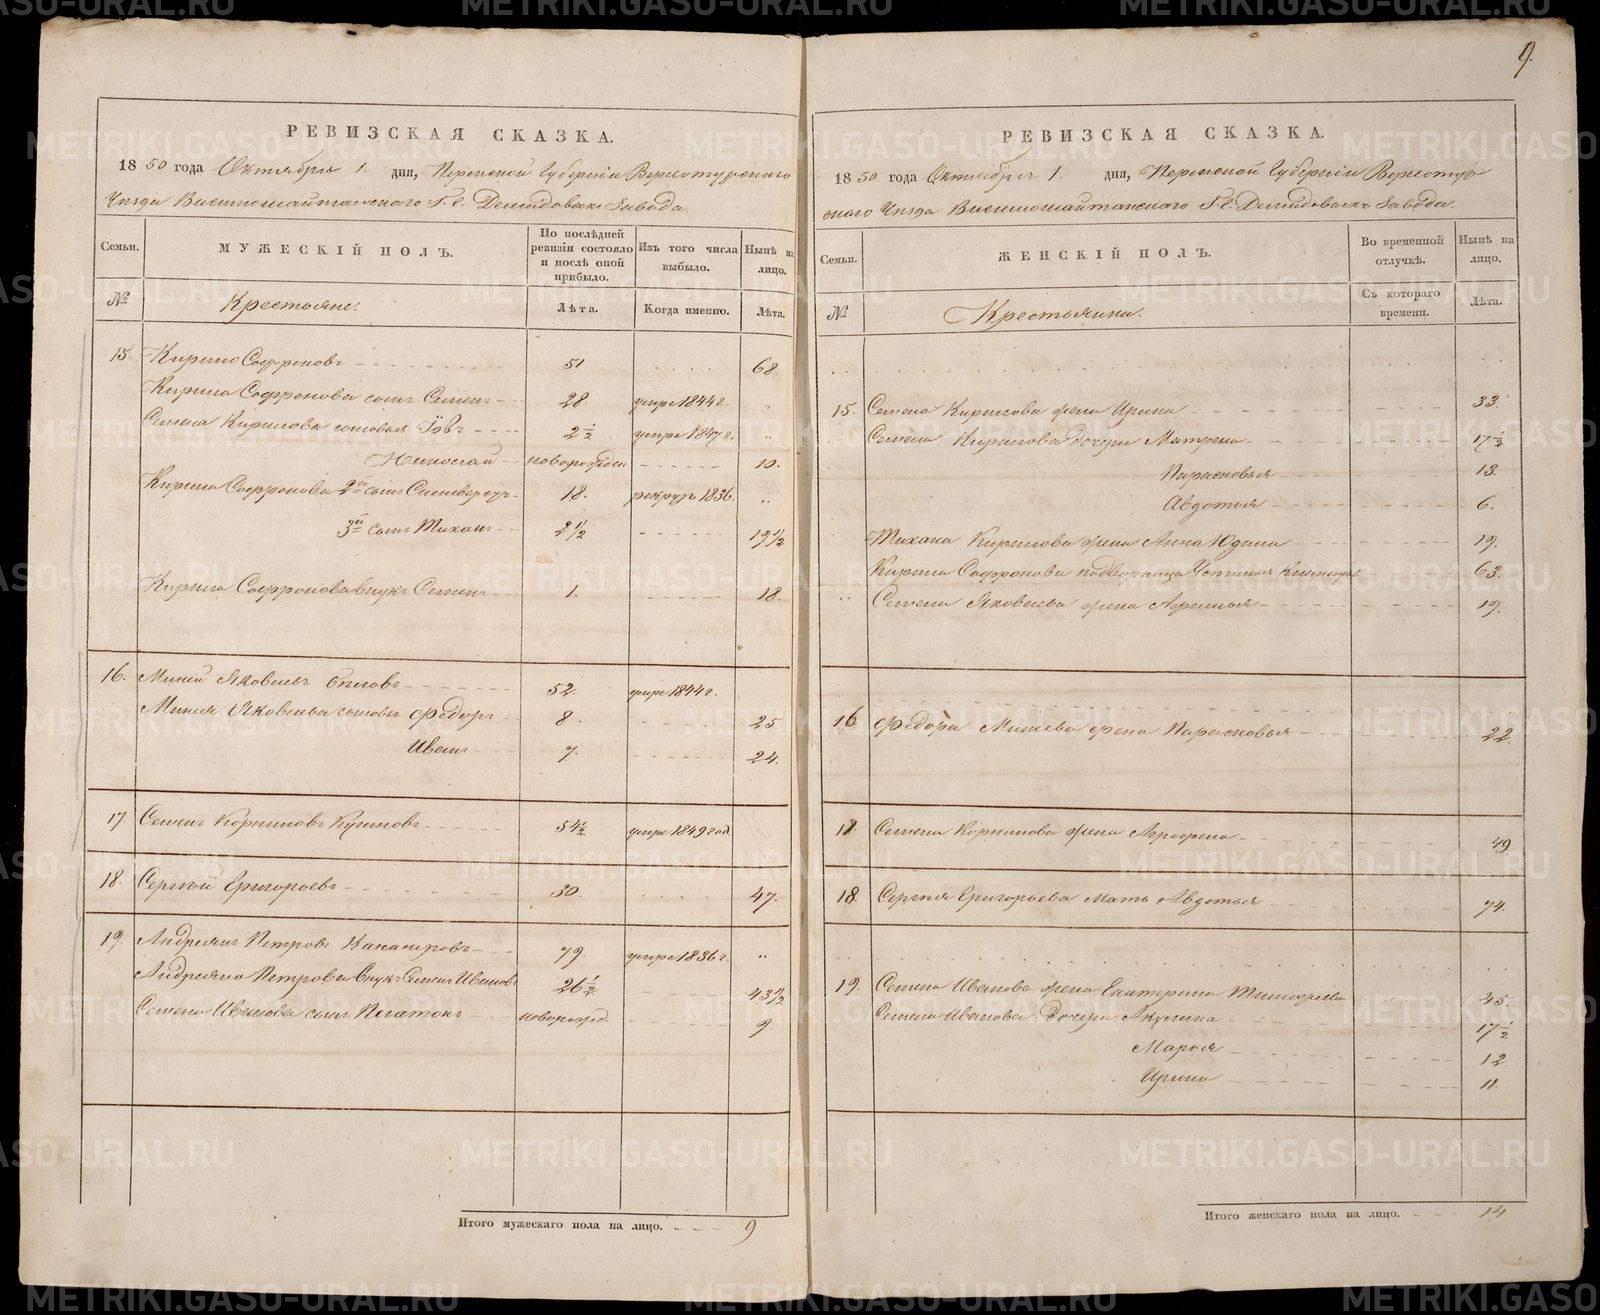 9.
РЕВИЗСКАЯ СКАЗКА.
1850 года Октября 1. дня, Пермской Губернiи Верхотурскаго
Уѣзда Висимошайтанскаго Г.г. Демидовыхъ завода
Семьи.
МУЖЕСКIЙ ПОЛЪ.
По послѣдней ревизiи состояло и послѣ оной прибыло.
Изъ того числа выбыло.
Нынѣ на лицо.
№
Крестьяне.
Лѣта.
Когда именно.
Лѣта.
15. Кирило Софроновъ 51 68
Кирила Софронова сынъ Семенъ 28 умре 1844 г. „
Семена Кирилова сыновья Iовъ 2½ умре 1847 г. „
Николай новорожден 10.
Кирила Софронова 2й сынъ Сильверстъ 18. рекрутъ 1836. „
3й сынъ Тиханъ 2½ 19½
Кирила Софронова внукъ Семенъ 1. 18.
16. Миней Яковлевъ Бѣловъ 52. умре 1844 г.
Минея Яковлева сыновья Федоръ 8. 25
Иванъ 7. 24.
17 Семенъ Корниловъ 54½ умре 1849 год
18. Сергѣй Григорьевъ 30. 47.
19. Андреянъ Петровъ 79. умре 1836 г. „
Андреяна Петрова внукъ Семенъ Ивановъ 26½ 43½
Семена Иванова сынъ новорожд. 9.
Итого мужескаго пола на лицо. 9
РЕВИЗСКАЯ СКАЗКА.
1850 года Октября 1. дня, Пермской Губернiи Верхотур
скаго Уѣзда Висимошайтанскаго Г.г. Демидовыхъ завода.
Семьи.
ЖЕНСКIЙ ПОЛЪ.
Во временной отлучкѣ.
Нынѣ на лицо.
№
Крестьянки.
Съ котораго времени.
Лѣта.
15. Семена Кирилова жена Ирина 33.
Семена Кирилова дочери Матрена 17½
Парасковья 13.
Авдотья 6.
Тихана Кирилова жена Анна Юдина 19.
Кирила Софронова 63.
Семена Яковлева жена 19.
16 Федора Минеева жена Парасковья 22.
17. Семена Корнилова жена Агрофена 49
18. Сергѣя Григорьева мать Авдотья 74.
19. Семена Иванова жена Екатерина Тимофеева 45.
Семена Иванова дочери Акулина 17½
Марья 12
Ирина 11
Итого женскаго пола на лицо. 14
METRIKI.GASO-URAL.RU